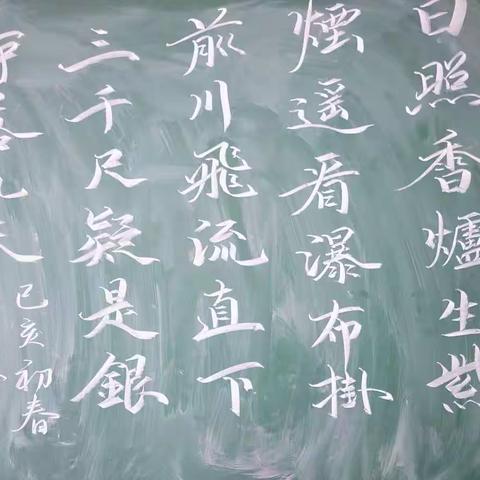 日照香爐生紫
煙遥看瀑布掛
前川飛流直下
三千尺疑是銀
河落九天
己亥初春